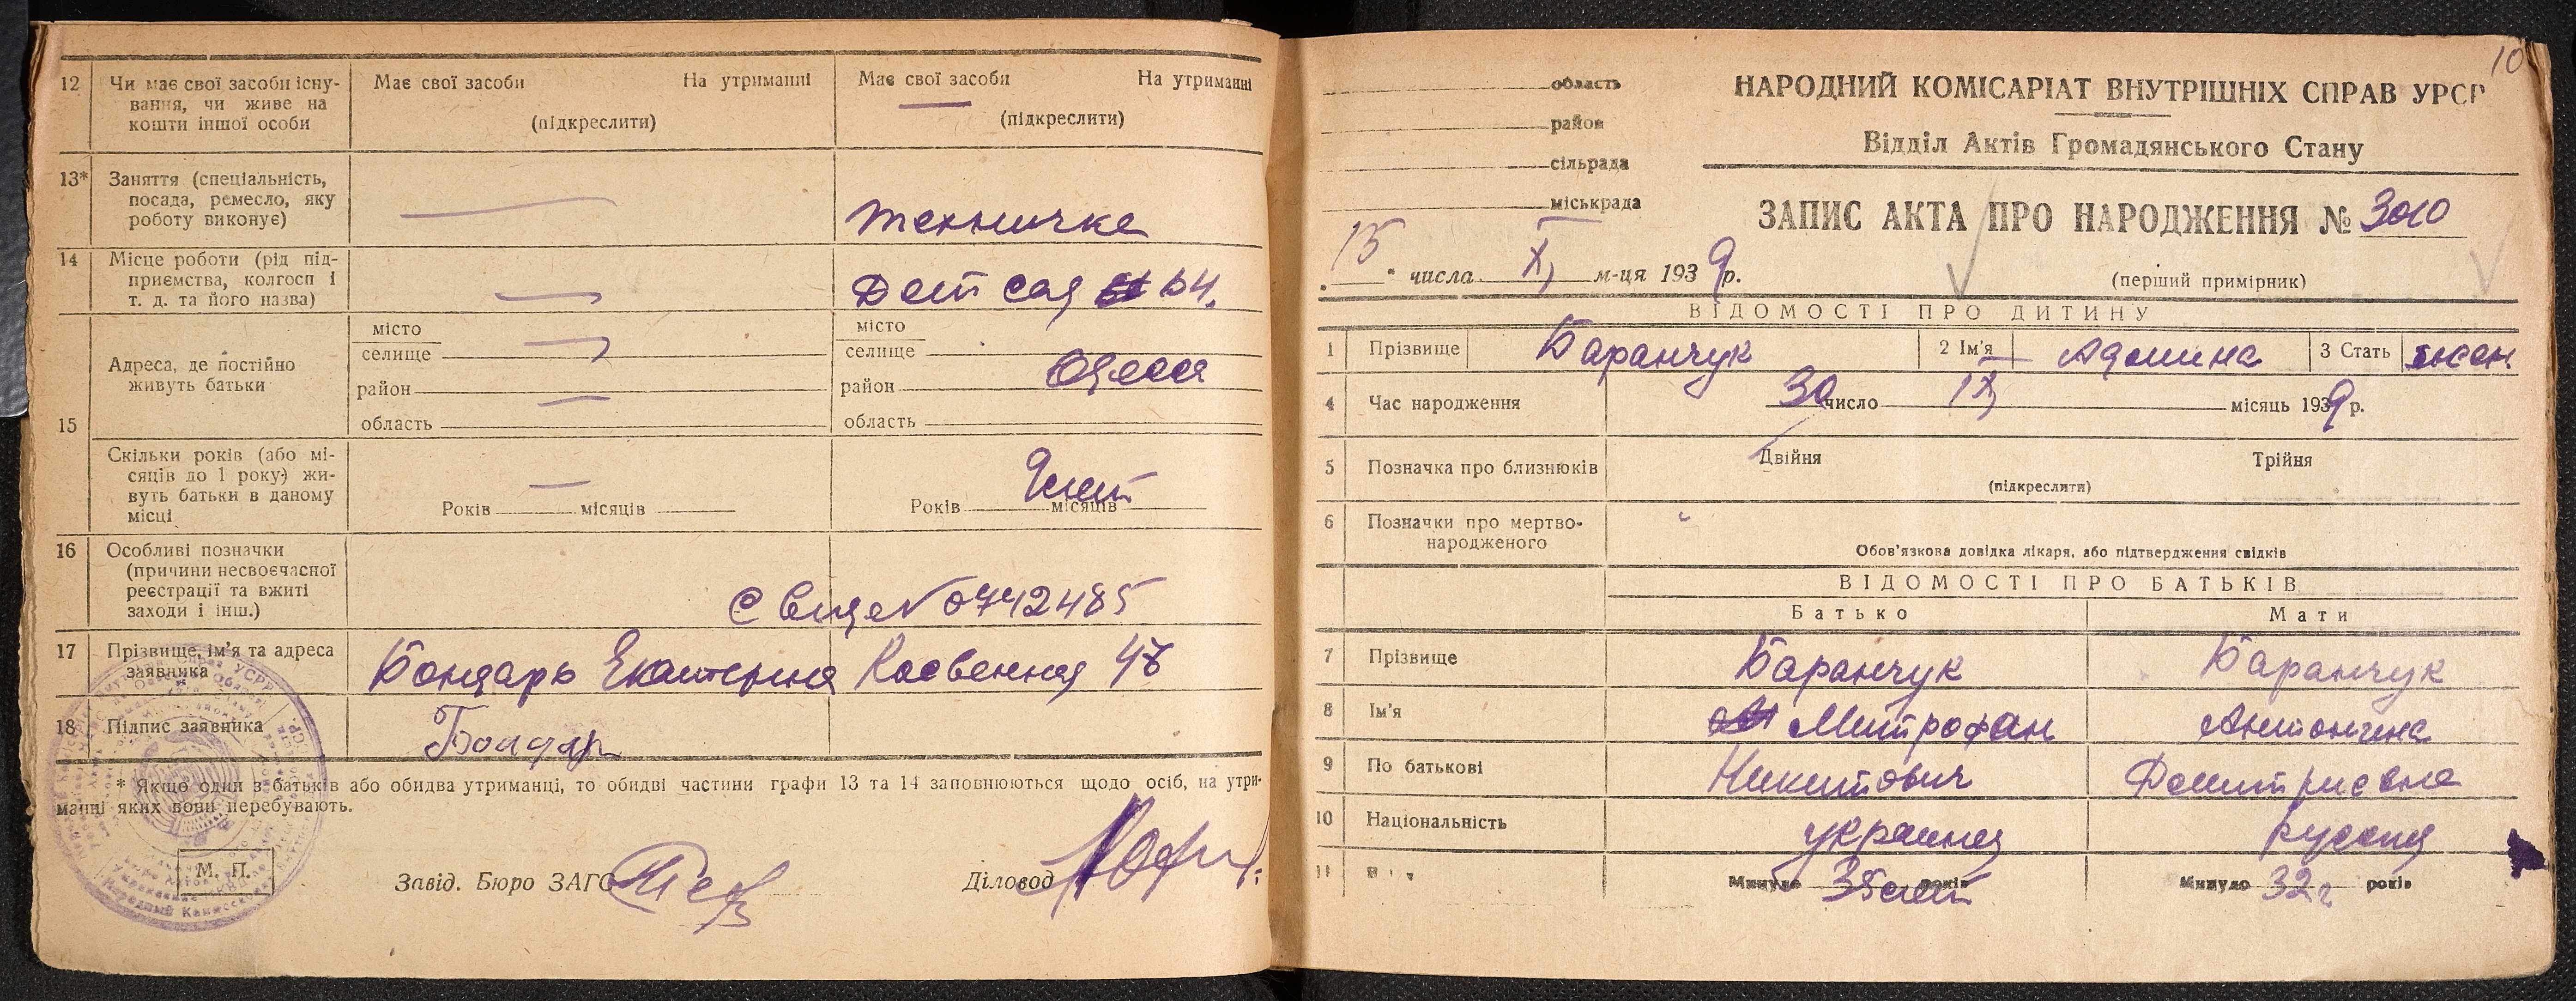 12 Чи має свої засоби існу-
вання, чи живе на
кошти іншої особи
Має свої засоби На утриманні
(підкреслити)
Має свої засоби На утриманні
(підкреслити)
13* Заняття (спеціальність,
посада, ремесло, яку
роботу виконує)
техничка
14 Місце роботи (рід під-
приємства, колгосп і
т. д. та його назва)
Дет сад 64.
15 Адреса, де постійно
живуть батьки
місто
селище
район
область
місто
селище
Одесса
район
область
Скільки років (або мі-
сяців до 1 року) жи-
вуть батьки в даному
місці
Років місяців
9 лет
Років місяців
16 Особливі позначки
(причини несвоєчасної
реєстрації та вжиті
заходи і інш.)
№ 0742485
17 Прізвище, ім'я та адреса
заявника
Бондарь Екатерина Косвенная 47
18 Підпис заявника
Бондар
* Якщо один з батьків або обидва утриманці, то обидві частини графи 13 та 14 заповнюються щодо осіб, на утри-
манні яких вони перебувають.
М. П.
Завід. Бюро ЗАГС
Діловод
10
область
район
сільрада
міськрада
НАРОДНИЙ КОМІСАРІАТ ВНУТРІШНІХ СПРАВ УРСР
Відділ Актів Громадянського Стану
ЗАПИС АКТА ПРО НАРОДЖЕННЯ № 3010
15 " числа X м-ця 1939 р.
(перший примірник)
ВІДОМОСТІ ПРО ДИТИНУ
1 Прізвище Баранчук 2 Ім'я 3 Стать жен.
4 Час народження 30 число IX місяць 1939 р.
5 Позначка про близнюків Двійня Трійня
(підкреслити)
6 Позначки про мертво-
народженого
Обов'язкова довідка лікаря, або підтвердження свідків
ВІДОМОСТІ ПРО БАТЬКІВ
Батько Мати
7 Прізвище Баранчук Баранчук
8 Ім'я Митрофан Антонина
9 По батькові Никитович Дмитриевна
10 Національність украинец русская
11 Минуло 35 лет років Минуло 32 г років